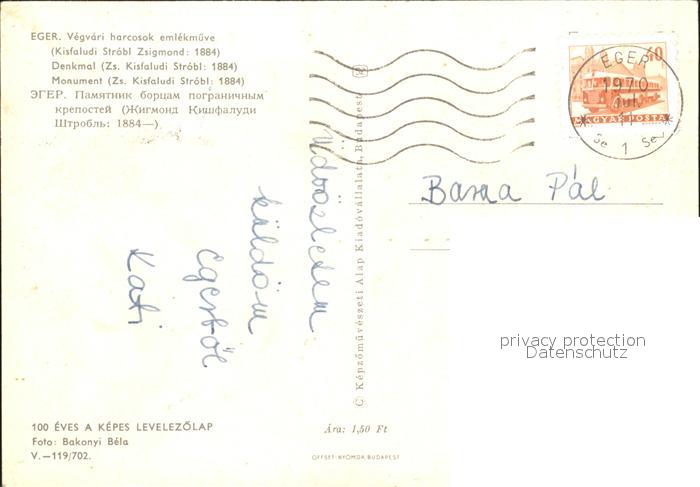 EGER. Végvári harcosok emlékműve
(Kisfaludi Stróbl Zsigmond: 1884)
Denkmal (Zs. Kisfaludi Stróbl: 1884)
Monument (Zs. Kisfaludi Stróbl: 1884)
ЭГЕР. Памятник борцам пограничным
крепостей (Жигмонд Кишфалуди
Штробль: 1884—)
Üdvözletem
küldöm
Egerből
Kati
© Képzőművészeti Alap Kiadóvállalata, Budapest
60
MAGYAR POSTA
EGER
1970
1
Barna Pál
privacy protection
Datenschutz
100 ÉVES A KÉPES LEVELEZŐLAP
Foto: Bakonyi Béla
V.—119/702.
Ára: 1,50 Ft
OFFSET-NYOMDA, BUDAPEST